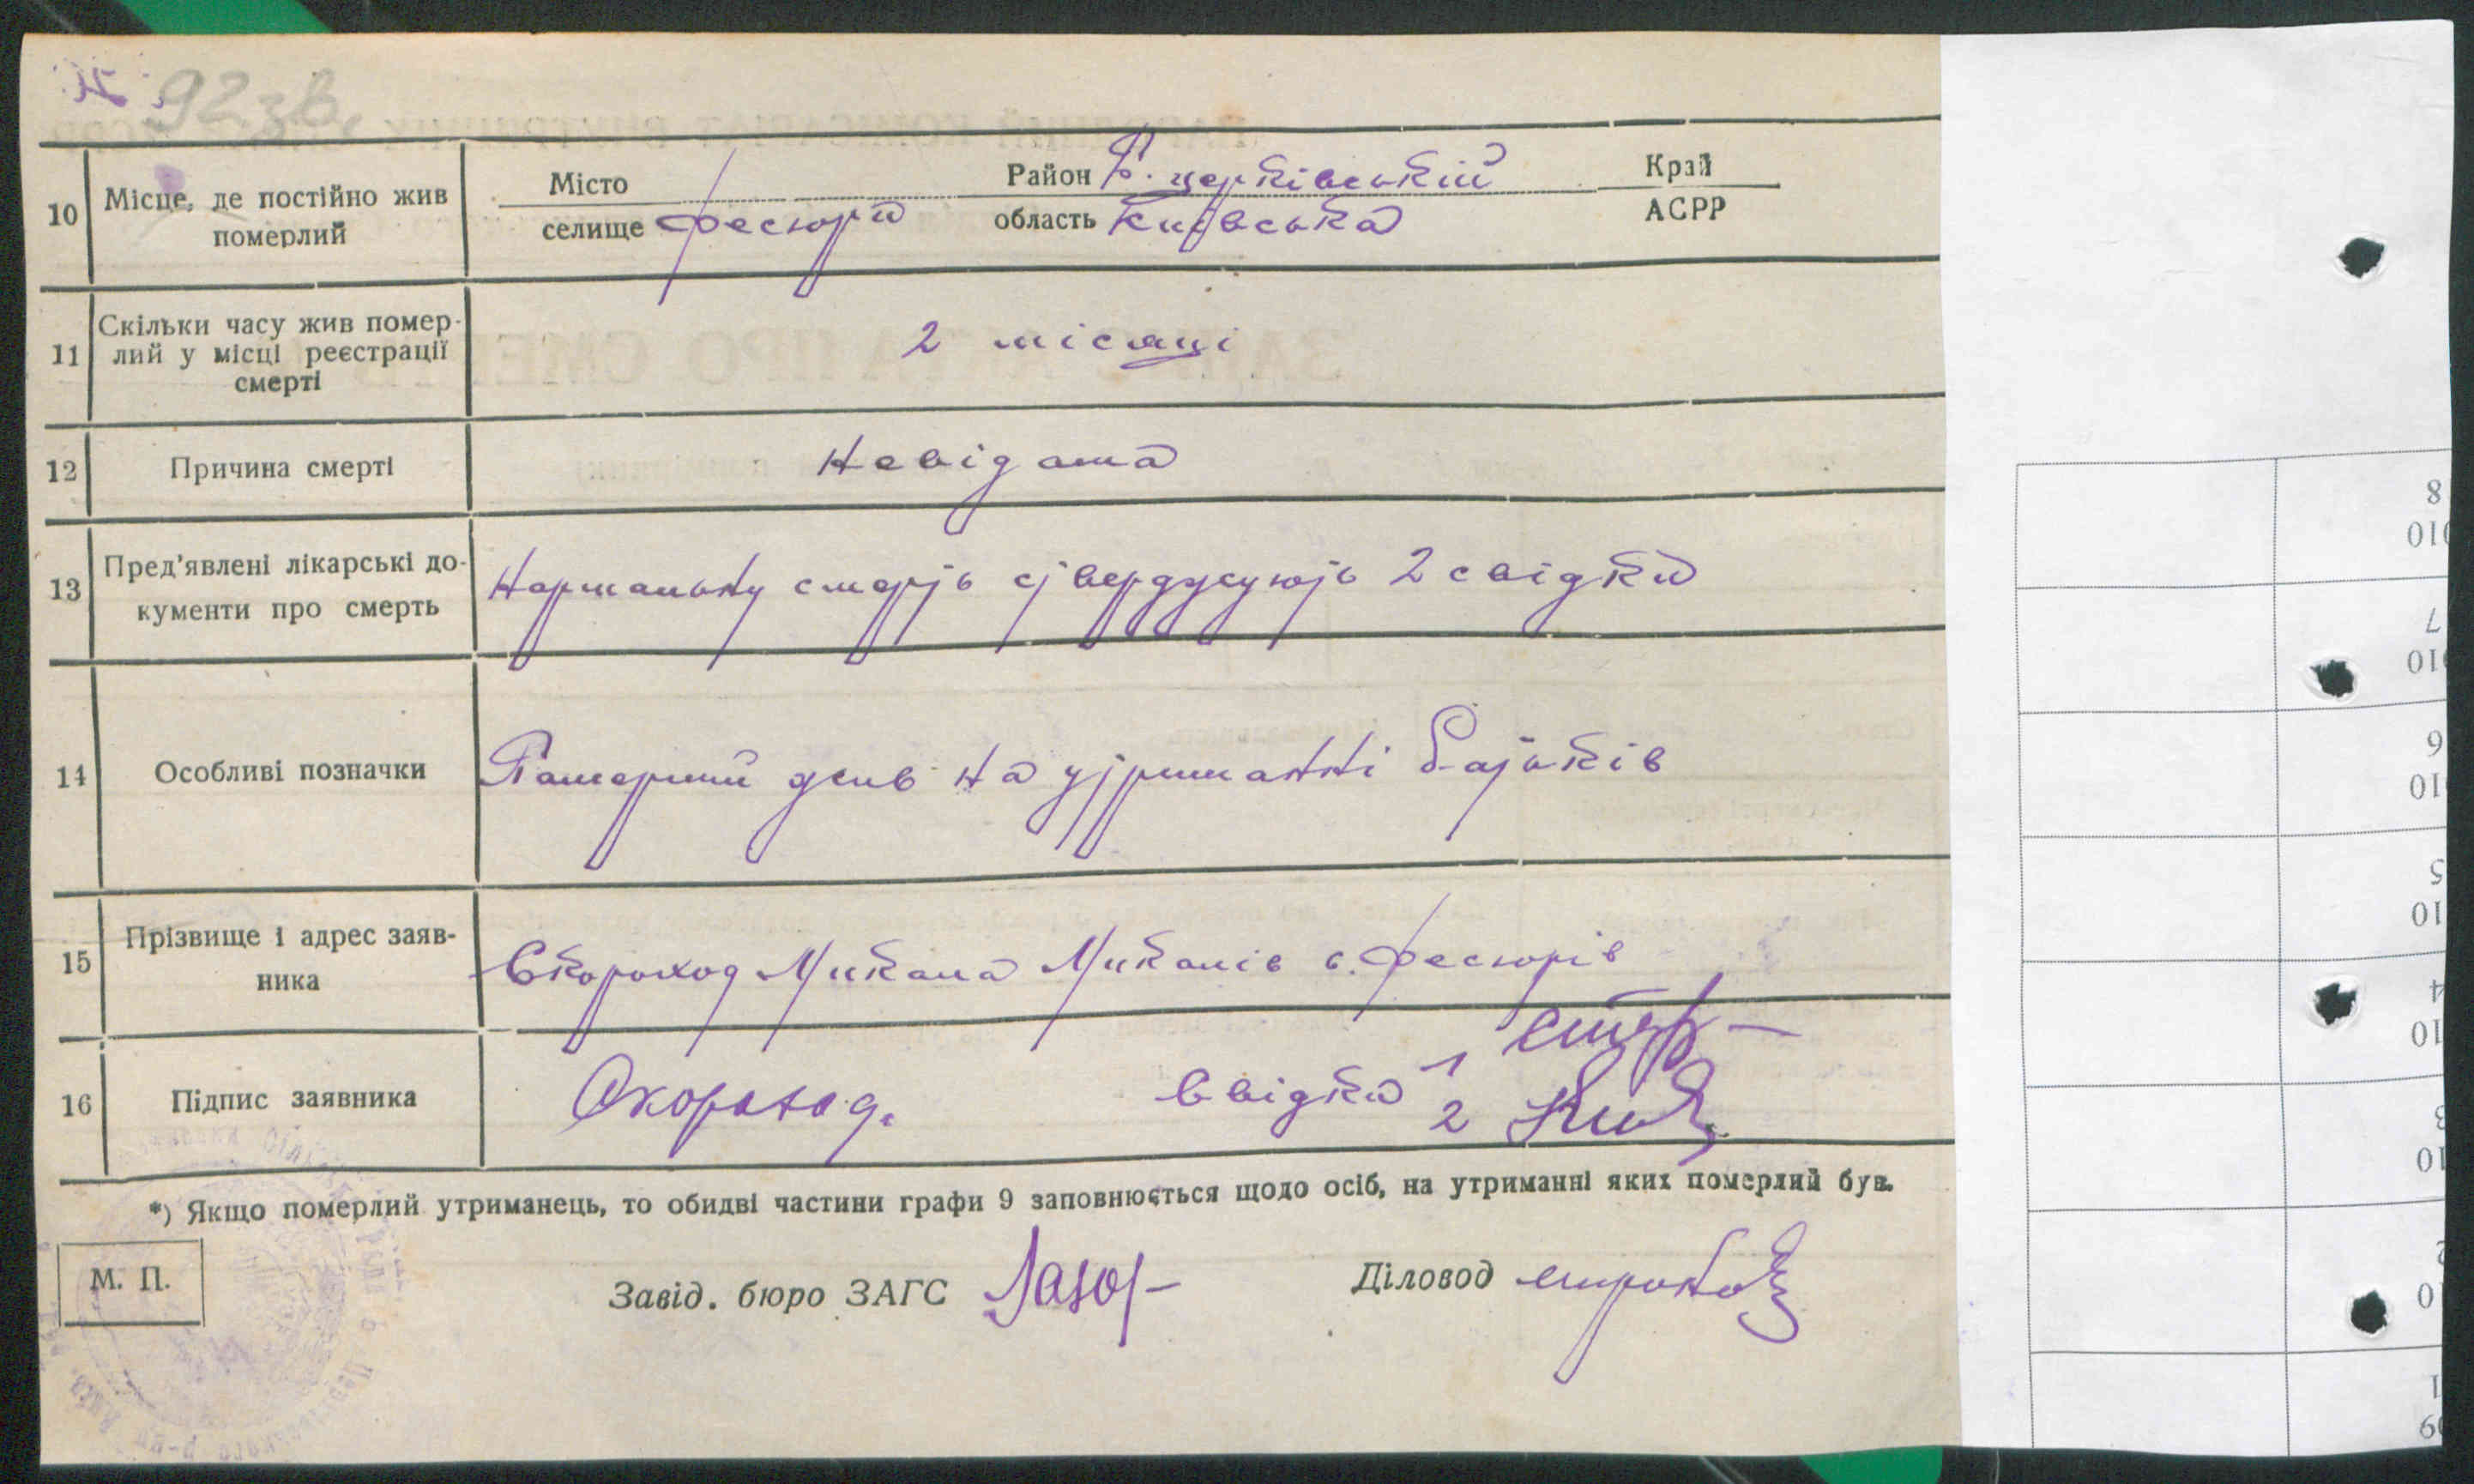 92 зв.
10 Місце, де постійно жив померлий
Місто Район Б. церківський Край
селище Фесюри область Київська АСРР
11 Скільки часу жив помер-
лий у місці реєстрації
смерті
2 місяці
12 Причина смерті
Невідома
13 Пред'явлені лікарські до-
кументи про смерть
Нормальну смерть стверджують 2 свідки
14 Особливі позначки
Померший на утриманні батьків
15 Прізвище і адрес заяв-
ника
Скороход Микола с. Фесюрів
16 Підпис заявника
Скороход. Свідки 1
2
*) Якщо померлий утриманець, то обидві частини графи 9 заповнюється щодо осіб, на утриманні яких померлий був.
М. П.
Завід. бюро ЗАГС Діловод
8
010
7
010
6
010
5
010
4
010
3
010
2
10
1
09